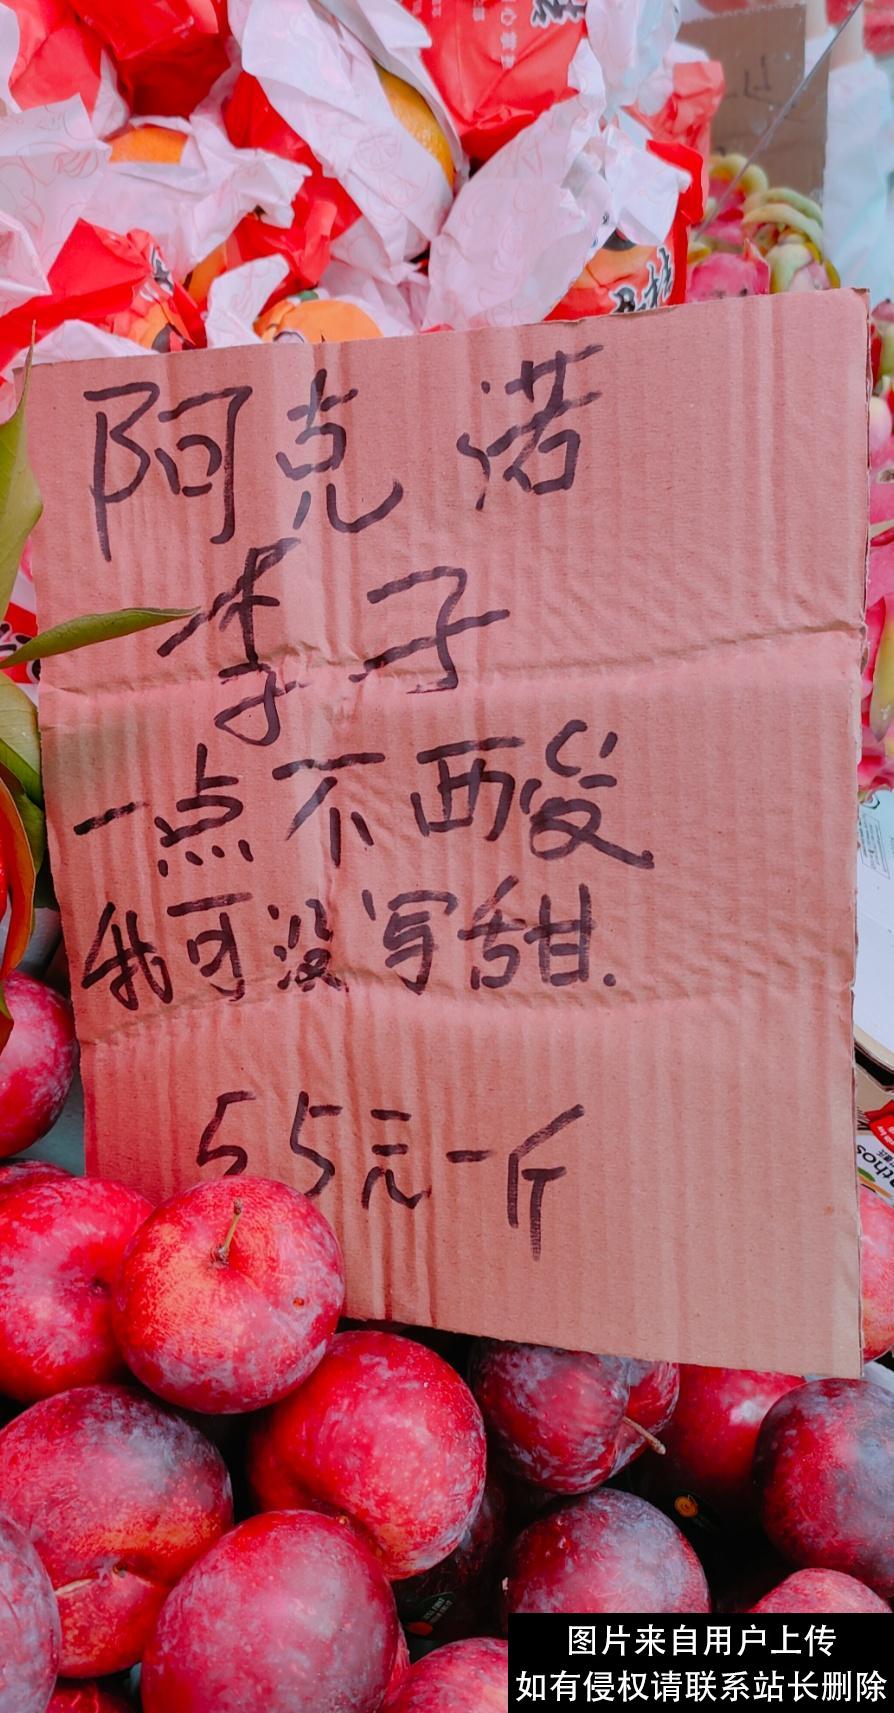 阿克诺
李子
一点不酸
我可没写甜.
55元一斤
图片来自用户上传
如有侵权请联系站长删除